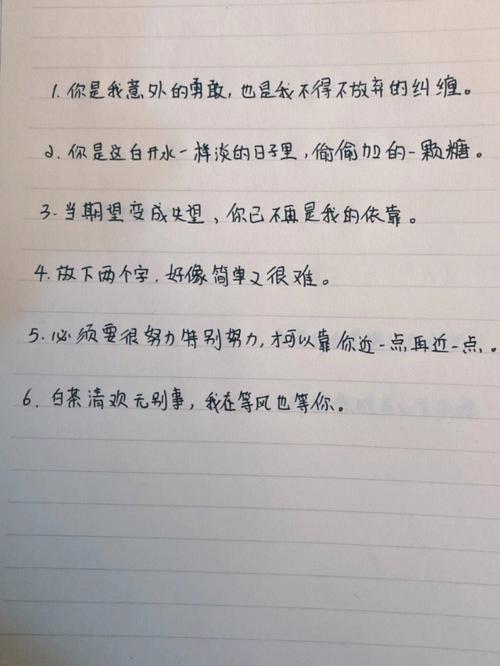 1. 你是我意外的勇敢，也是我不得不放弃的纠缠。
2. 你是这白开水一样淡的日子里，偷偷加的一颗糖。
3. 当期望变成失望，你已不再是我的依靠。
4. 放下两个字，好像简单又很难。
5. 必须要很努力特别努力，才可以靠你近一点再近一点。
6. 白茶清欢无别事，我在等风也等你。